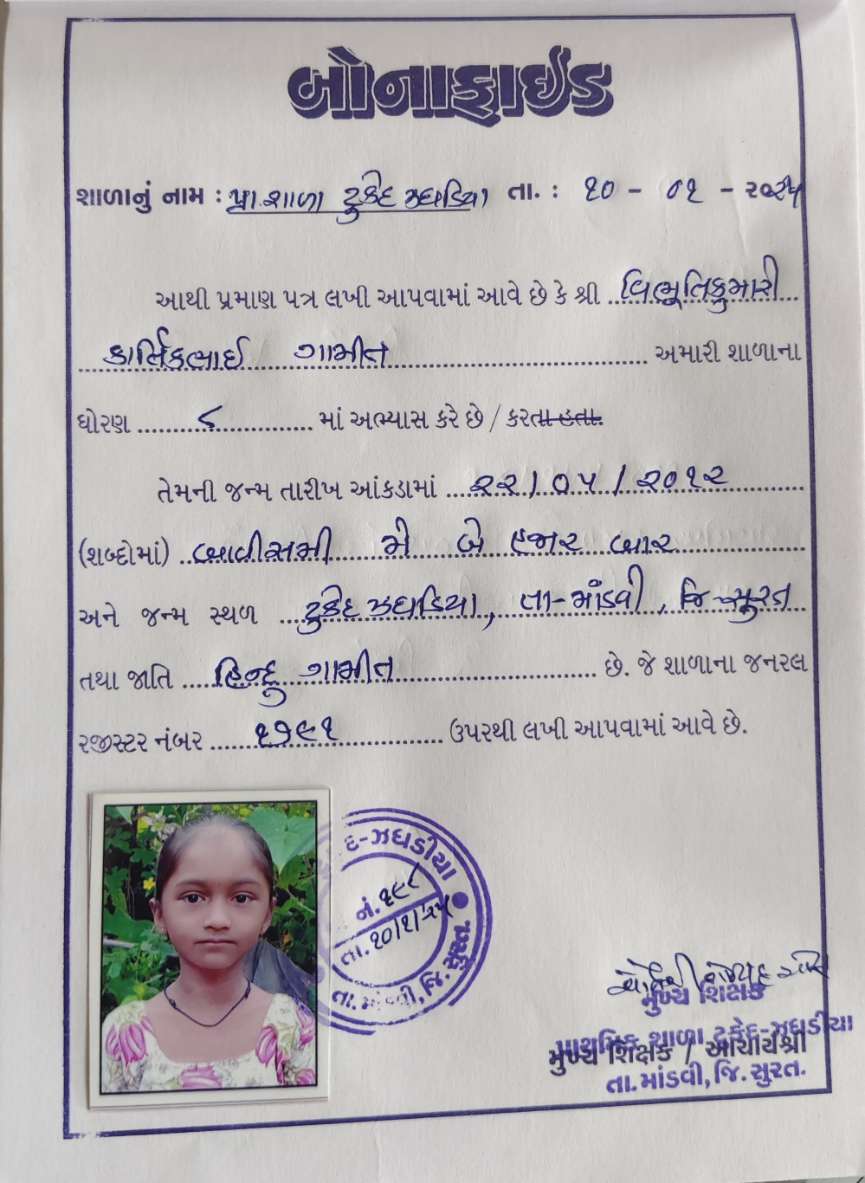 બોનાફાઈડ
શાળાનું નામ : પ્રા.શાળા ટુકેદ ઝઘડિયા તા. : ૧૦ - ૦૧ - ૨૦૨૫
આથી પ્રમાણ પત્ર લખી આપવામાં આવે છે કે શ્રી વિભૂતિકુમારી
કાર્તિકભાઈ ગામીત અમારી શાળાના
ધોરણ ૮ માં અભ્યાસ કરે છે / કરતા હતા.
તેમની જન્મ તારીખ આંકડામાં ૨૨/૦૫/૨૦૧૨
(શબ્દોમાં) બાવીસમી મે બે હજાર બાર
અને જન્મ સ્થળ ટુકેદ ઝઘડિયા, તા-માંડવી, જિ-સુરત
તથા જાતિ હિન્દુ ગામીત છે. જે શાળાના જનરલ
રજીસ્ટર નંબર ૧૭૯૧ ઉપરથી લખી આપવામાં આવે છે.
દ-ઝઘડીયા
નં. ૧૯૮
તા. ૧૦/૧/૨૫
તા. માંડવી, જિ. સુરત.
મુખ્ય શિક્ષક
પ્રાથમિક શાળા ટુકેદ-ઝઘડીયા
મુખ્ય શિક્ષક / આચાર્યશ્રી
તા. માંડવી, જિ. સુરત.